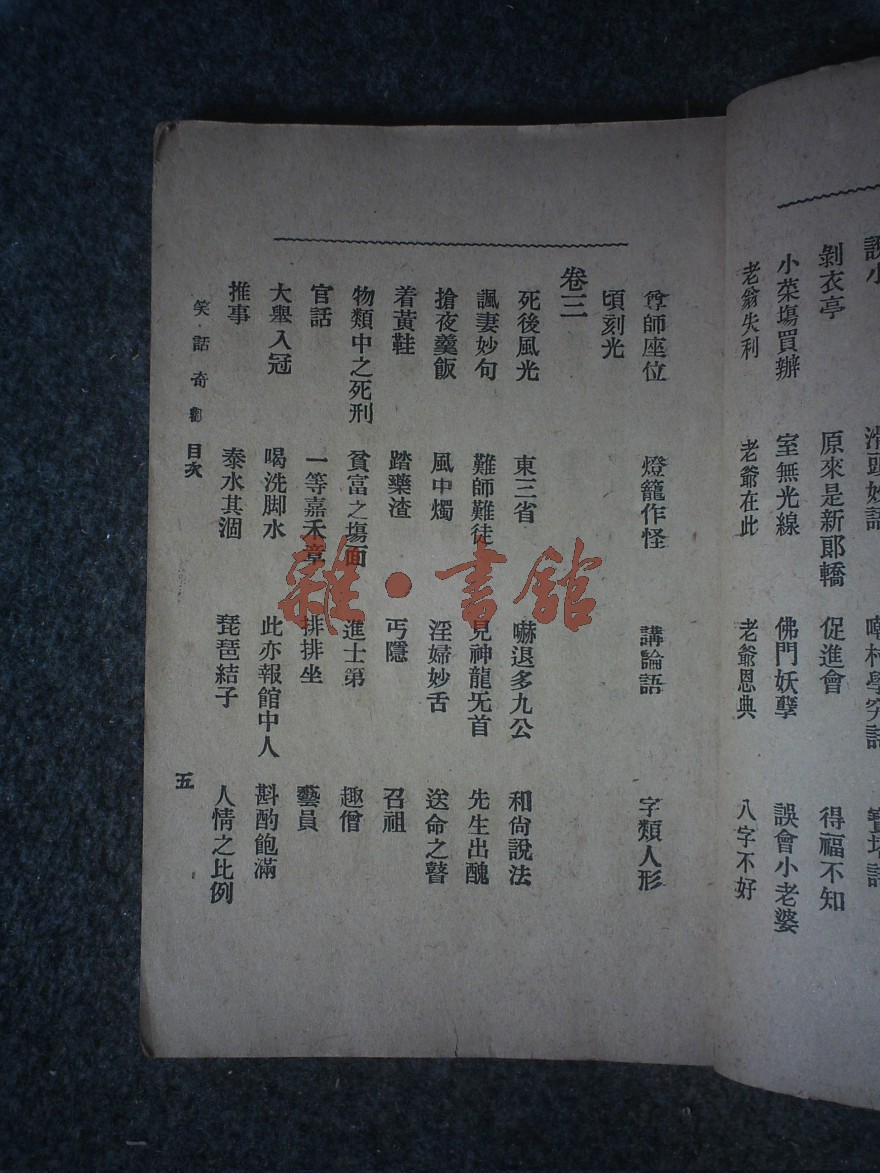 剝衣亭　原來是新郎轎　促進會　得福不知
小菜塲買辦　室無光線　佛門妖孽　誤會小老婆
老翁失利　老爺在此　老爺恩典　八字不好
尊師座位　燈籠作怪　講論語　字類人形
頃刻光
卷三
死後風光　東三省　嚇退多九公　和尙說法
諷妻妙句　難師難徒　見神龍旡首　先生出醜
搶夜羹飯　風中燭　淫婦妙舌　送命之瞽
着黃鞋　踏藥渣　丐隱　召祖
物類中之死刑　貧富之塲面　進士第　趣僧
官話　一等嘉禾章　排排坐　藝員
大舉入冠　喝洗脚水　此亦報館中人　斟酌飽滿
推事　泰水其涸　琵琶結子　人情之比例
笑話奇觀　目次　五
雜·書館